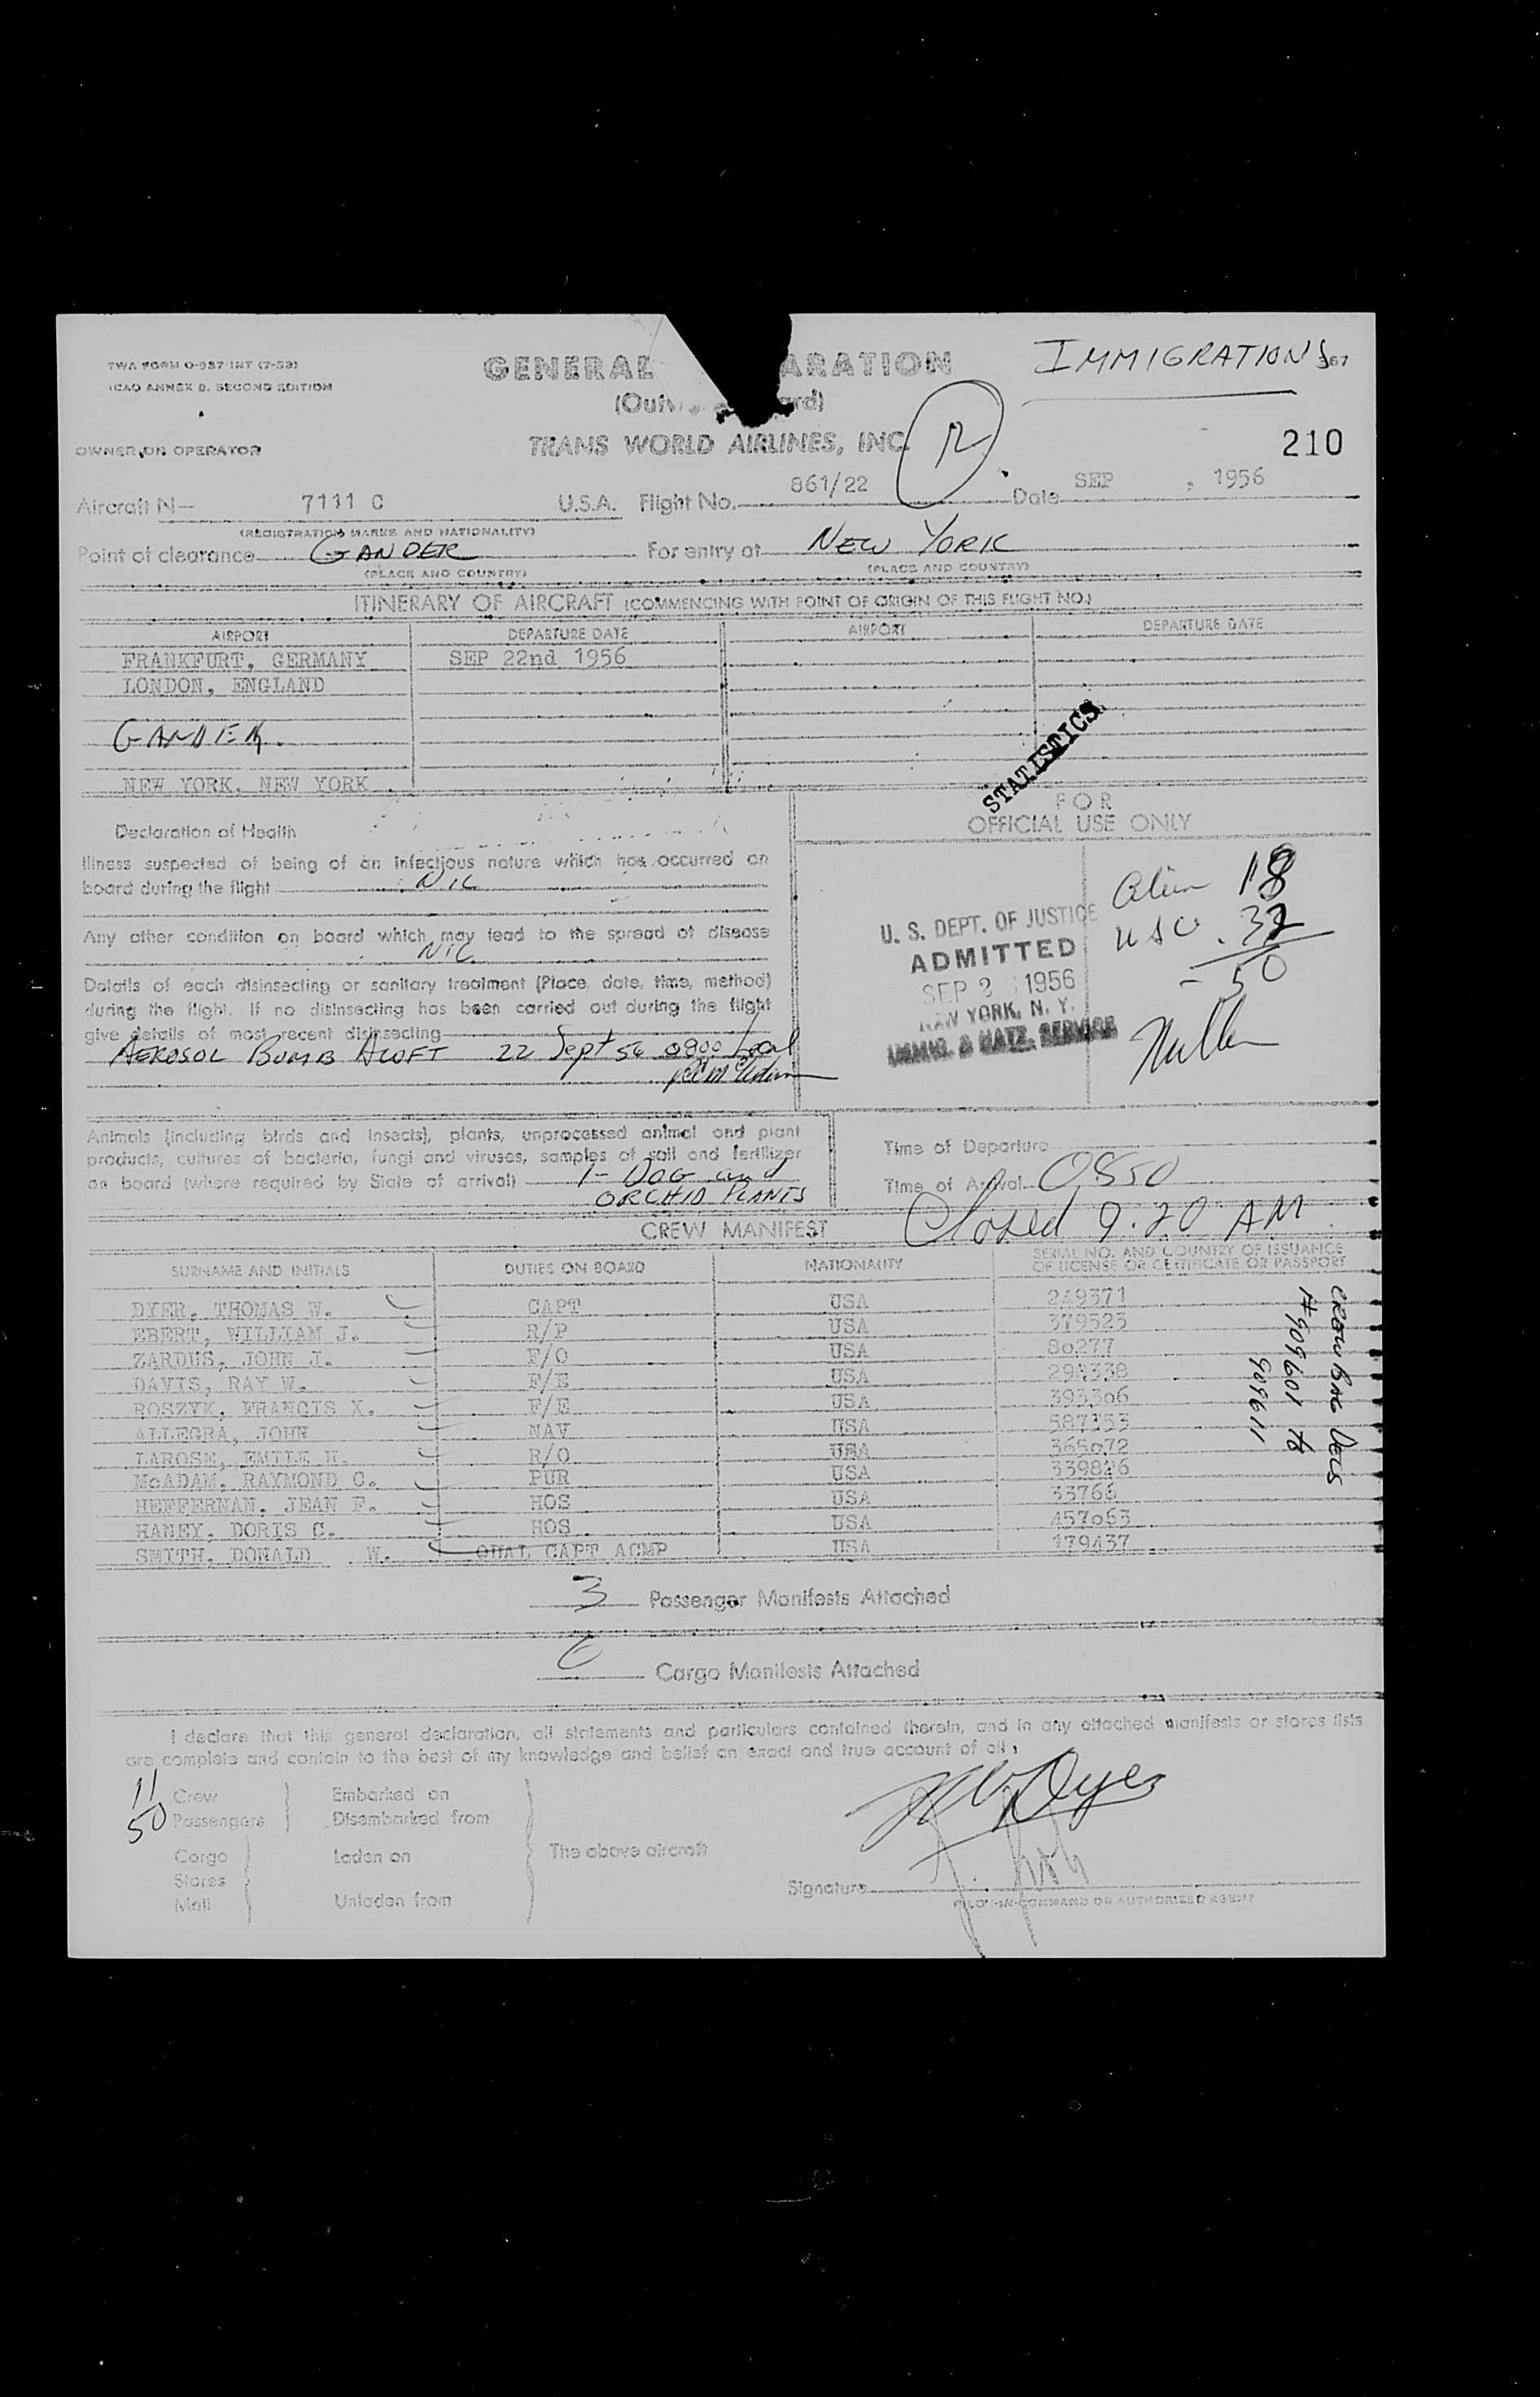 TWA FORM O-957-INT (7-53)
ICAO ANNEX 9. SECOND EDITION
GENERAL ARATION
IMMIGRATION
OWNER OR OPERATOR
TRANS WORLD AIRLINES, INC.
R
210
Aircraft N— 7111 C U.S.A. Flight No. 861/22 Date SEP , 1956
(REGISTRATION MARKS AND NATIONALITY)
Point of clearance GANDER For entry at NEW YORK
(PLACE AND COUNTRY) (PLACE AND COUNTRY)
ITINERARY OF AIRCRAFT (COMMENCING WITH POINT OF ORIGIN OF THIS FLIGHT NO.)
AIRPORT DEPARTURE DATE AIRPORT DEPARTURE DATE
FRANKFURT, GERMANY SEP 22nd 1956
LONDON, ENGLAND
GANDER.
NEW YORK, NEW YORK
STATISTICS
Declaration of Health
Illness suspected of being of an infectious nature which has occurred on
board during the flight NIL
Any other condition on board which may lead to the spread of disease
NIL
Details of each disinsecting or sanitary treatment (Place, date, time, method)
during the flight. If no disinsecting has been carried out during the flight
give details of most recent disinsecting
AEROSOL BOMB ALOFT 22 Sept 56 0800 Local
FOR
OFFICIAL USE ONLY
Alien 18
USC 32
50
U. S. DEPT. OF JUSTICE
ADMITTED
SEP 2 1956
NEW YORK, N. Y.
IMMIG. & NATZ. SERVICE
Animals (including birds and insects), plants, unprocessed animal and plant
products, cultures of bacteria, fungi and viruses, samples of soil and fertilizer
on board (where required by State of arrival) 1- DOG and
ORCHID PLANTS
Time of Departure
Time of Arrival 0850
Closed 9.20 AM
CREW MANIFEST
SURNAME AND INITIALS DUTIES ON BOARD NATIONALITY SERIAL NO. AND COUNTRY OF ISSUANCE OF LICENSE OR CERTIFICATE OR PASSPORT
DYER, THOMAS W. CAPT USA 249371
EBERT, WILLIAM J. R/P USA 379523
ZARDUS, JOHN J. F/O USA 80277
DAVIS, RAY W. F/E USA 298338
ROSZYK, FRANCIS X. F/E USA 393306
ALLEGRA, JOHN NAV USA 587353
LAROSE, EMILE H. R/O USA 365072
McADAM, RAYMOND C. PUR USA 339826
HEFFERNAN, JEAN F. HOS USA 33766
HANEY, DORIS C. HOS USA 457063
SMITH, DONALD W. QUAL CAPT ACMP USA 179437
CREW BAG DECS
A-909601 to
909611
3 Passenger Manifests Attached
6 Cargo Manifests Attached
I declare that this general declaration, all statements and particulars contained therein, and in any attached manifests or stores lists
are complete and contain to the best of my knowledge and belief an exact and true account of all
11 Crew Embarked on
50 Passengers Disembarked from
Cargo Laden on The above aircraft
Stores
Mail Unladen from
TWDyer
Signature
PILOT-IN-COMMAND OR AUTHORIZED AGENT